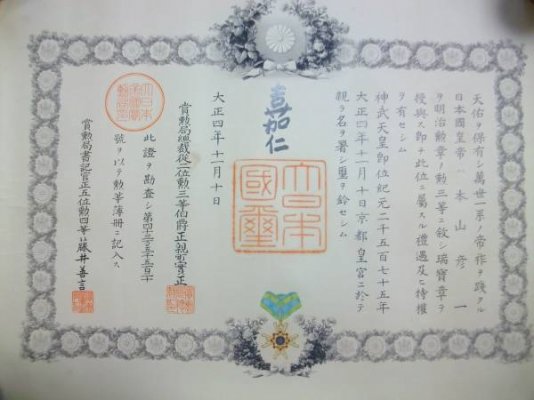 天佑ヲ保有シ萬世一系ノ帝祚ヲ踐タル
日本國皇帝ハ本山彦一
ヲ明治勲章ノ勲三等ニ敍シ瑞寶章ヲ
授與ス即チ此位ニ屬スル禮遇及ヒ特權
ヲ有セシム
神武天皇即位紀元二千五百七十五年
大正四年十一月十日京都皇宮ニ於テ
親ラ名ヲ署シ璽ヲ鈐セシム
嘉仁
大日本
國璽
大正四年十一月十日
賞勲局總裁從二位勲三等伯爵正親町實正
此證ヲ勘査シ第
號ヲ以テ勲等簿冊ニ記入ス
賞勲局書記官正五位勲四等藤井善言